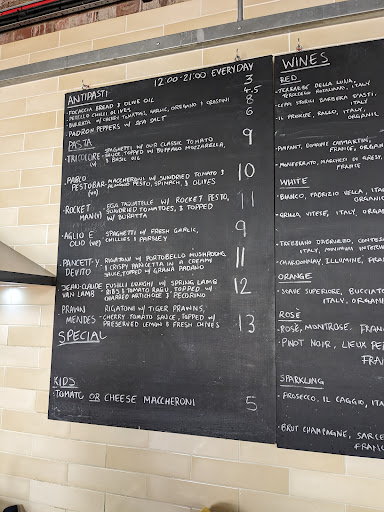 12:00-21:00 EVERYDAY
ANTIPASTI
•FOCACCIA BREAD & OLIVE OIL 3
•PERELLO CHILLI OLIVES 4.5
•BURRATA W/ CHERRY TOMATOES, GARLIC, OREGANO & CRASTONI 8
•PADRON PEPPERS W/ SEA SALT 6
PASTA
•TRICOLORE •SPAGHETTI W/ OUR CLASSIC TOMATO 9
(V) SAUCE, TOPPED W/ BUFFALO MOZZARELLA,
& BASIL OIL
•PABLO •MACCHERONI W/ SUNDRIED TOMATO & 10
PESTOBAR ALMOND PESTO, SPINACH, & OLIVES
(VE)
•ROCKET EGG TAGLIATELLE W/ ROCKET PESTO, 11
MAN(V) SUNDRIED TOMATOES, & TOPPED
W/ BURRATA
•AGLIO E SPAGHETTI W/ FRESH GARLIC, 9
OLIO (VE) CHILLIES & PARSLEY
•PANCETTY RIGATONI W/ PORTOBELLO MUSHROOMS 11
DEVITO & CRISPY PANCETTA IN A CREAMY
SAUCE, TOPPED W/ GRANA PADANO
•JEAN-CLAUDE FUSILLI LUNGHI W/ SPRING LAMB 12
VAN LAMB RIBS & TOMATO RAGU, TOPPED W/
CHARRED ARTICHOKE & PECORINO
•PRAWN RIGATONI W/ TIGER PRAWNS, 13
MENDES •CHERRY TOMATO SAUCE, TOPPED W/
PRESERVED LEMON & FRESH CHIVES
SPECIAL
KIDS
•TOMATO OR CHEESE MACCHERONI 5
WINES
RED
•TERRABBE DELLA LUNA,
ROSSIGLIANO, ITALY
•CEPPI STORICI BARBERA D'ASTI,
ITALY
•IL PUROSE, ROLLO, ITALY,
ORGANI
•PARPANT, DOMAINE CAMARTINS,
FRANCE, ORGAN
•MONFERRATO, MARCHESI DI GRESY,
FRANC
WHITE
•BIANCO, FABRIZIO VELLA, ITAL
ORGANIC
•GRILLO, VITESE, ITALY, ORGAN
•TREBBIANO D'ABRUZZO, CONTES
ITALY, MINIMUM INTERVEN
•CHARDONNAY, ILLUMINE, FRAN
ORANGE
•SOAVE SUPERIORE, BUCCIAT
ITALY, ORGANI
ROSÉ
•ROSÉ, MONTROSE, FRANC
•PINOT NOIR, LIEUX PER
FRAN
SPARKLING
•PROSECCO, IL CAGGIO, ITA
•BRUT CHAMPAGNE, SARCE
FRANC